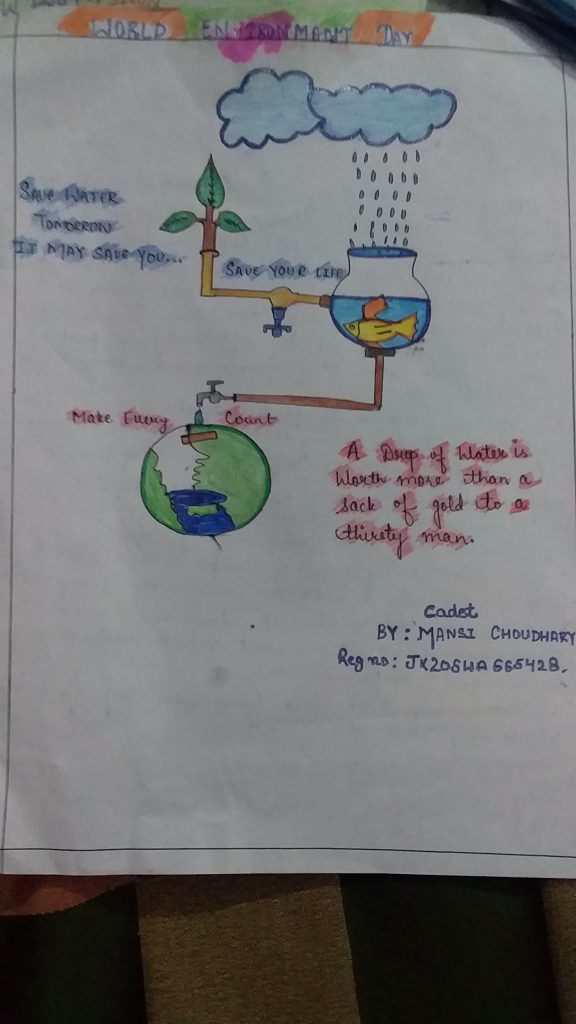 WORLD ENVIRONMANT DAY
SAVE WATER
TOMORROW
IT MAY SAVE YOU...
SAVE YOUR LIFE
Make Every Count
A Drop of Water is
Worth more than a
sack of gold to a
thirsty man.
Cadet
BY: MANSI CHOUDHARY
Reg no: JK20SWA665428.